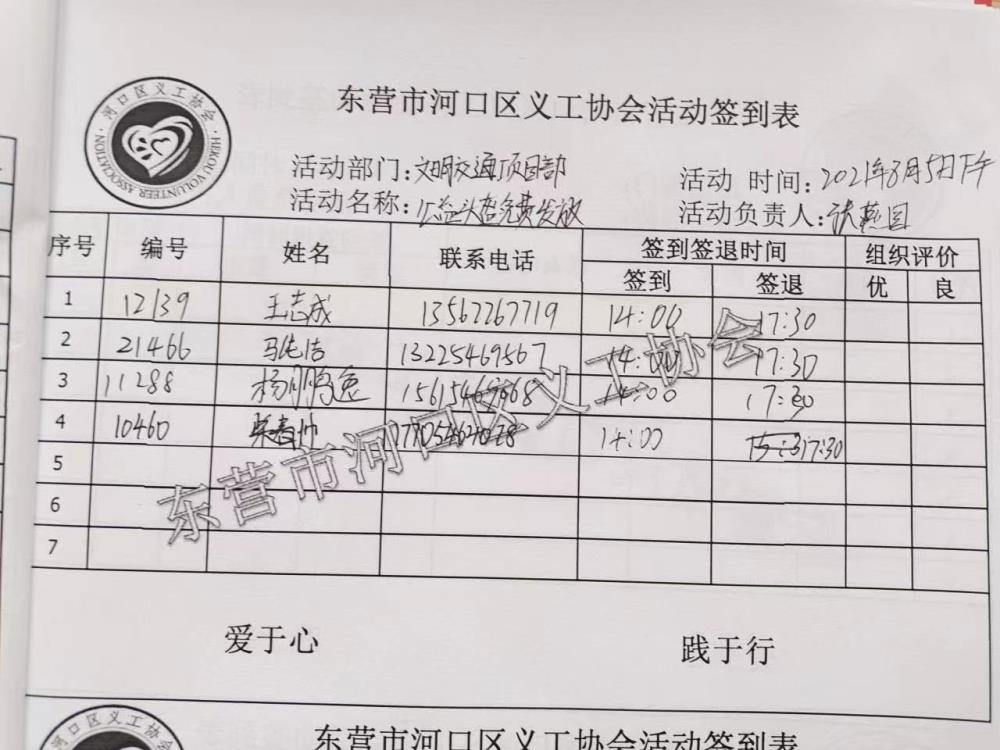 东营市河口区义工协会活动签到表
河口区义工协会
HEKOU VOLUNTEER ASSOCIATION
活动部门:文明交通项目部 活动 时间:2021年8月5日下午
活动名称:公益头盔免费发放 活动负责人:
序号 编号 姓名 联系电话 签到签退时间 组织评价
签到 签退 优 良
1 12139 王志成 13562267719 14:00 17:30
2 21466 马纯洁 13225469567 14:00 17:30
3 11288 14:00 17:30
4 10460 14:00 17:30
5
6
7
东营市河口区义工协会
爱于心 践于行
河口区义工协会
东营市河口区义工协会活动签到表